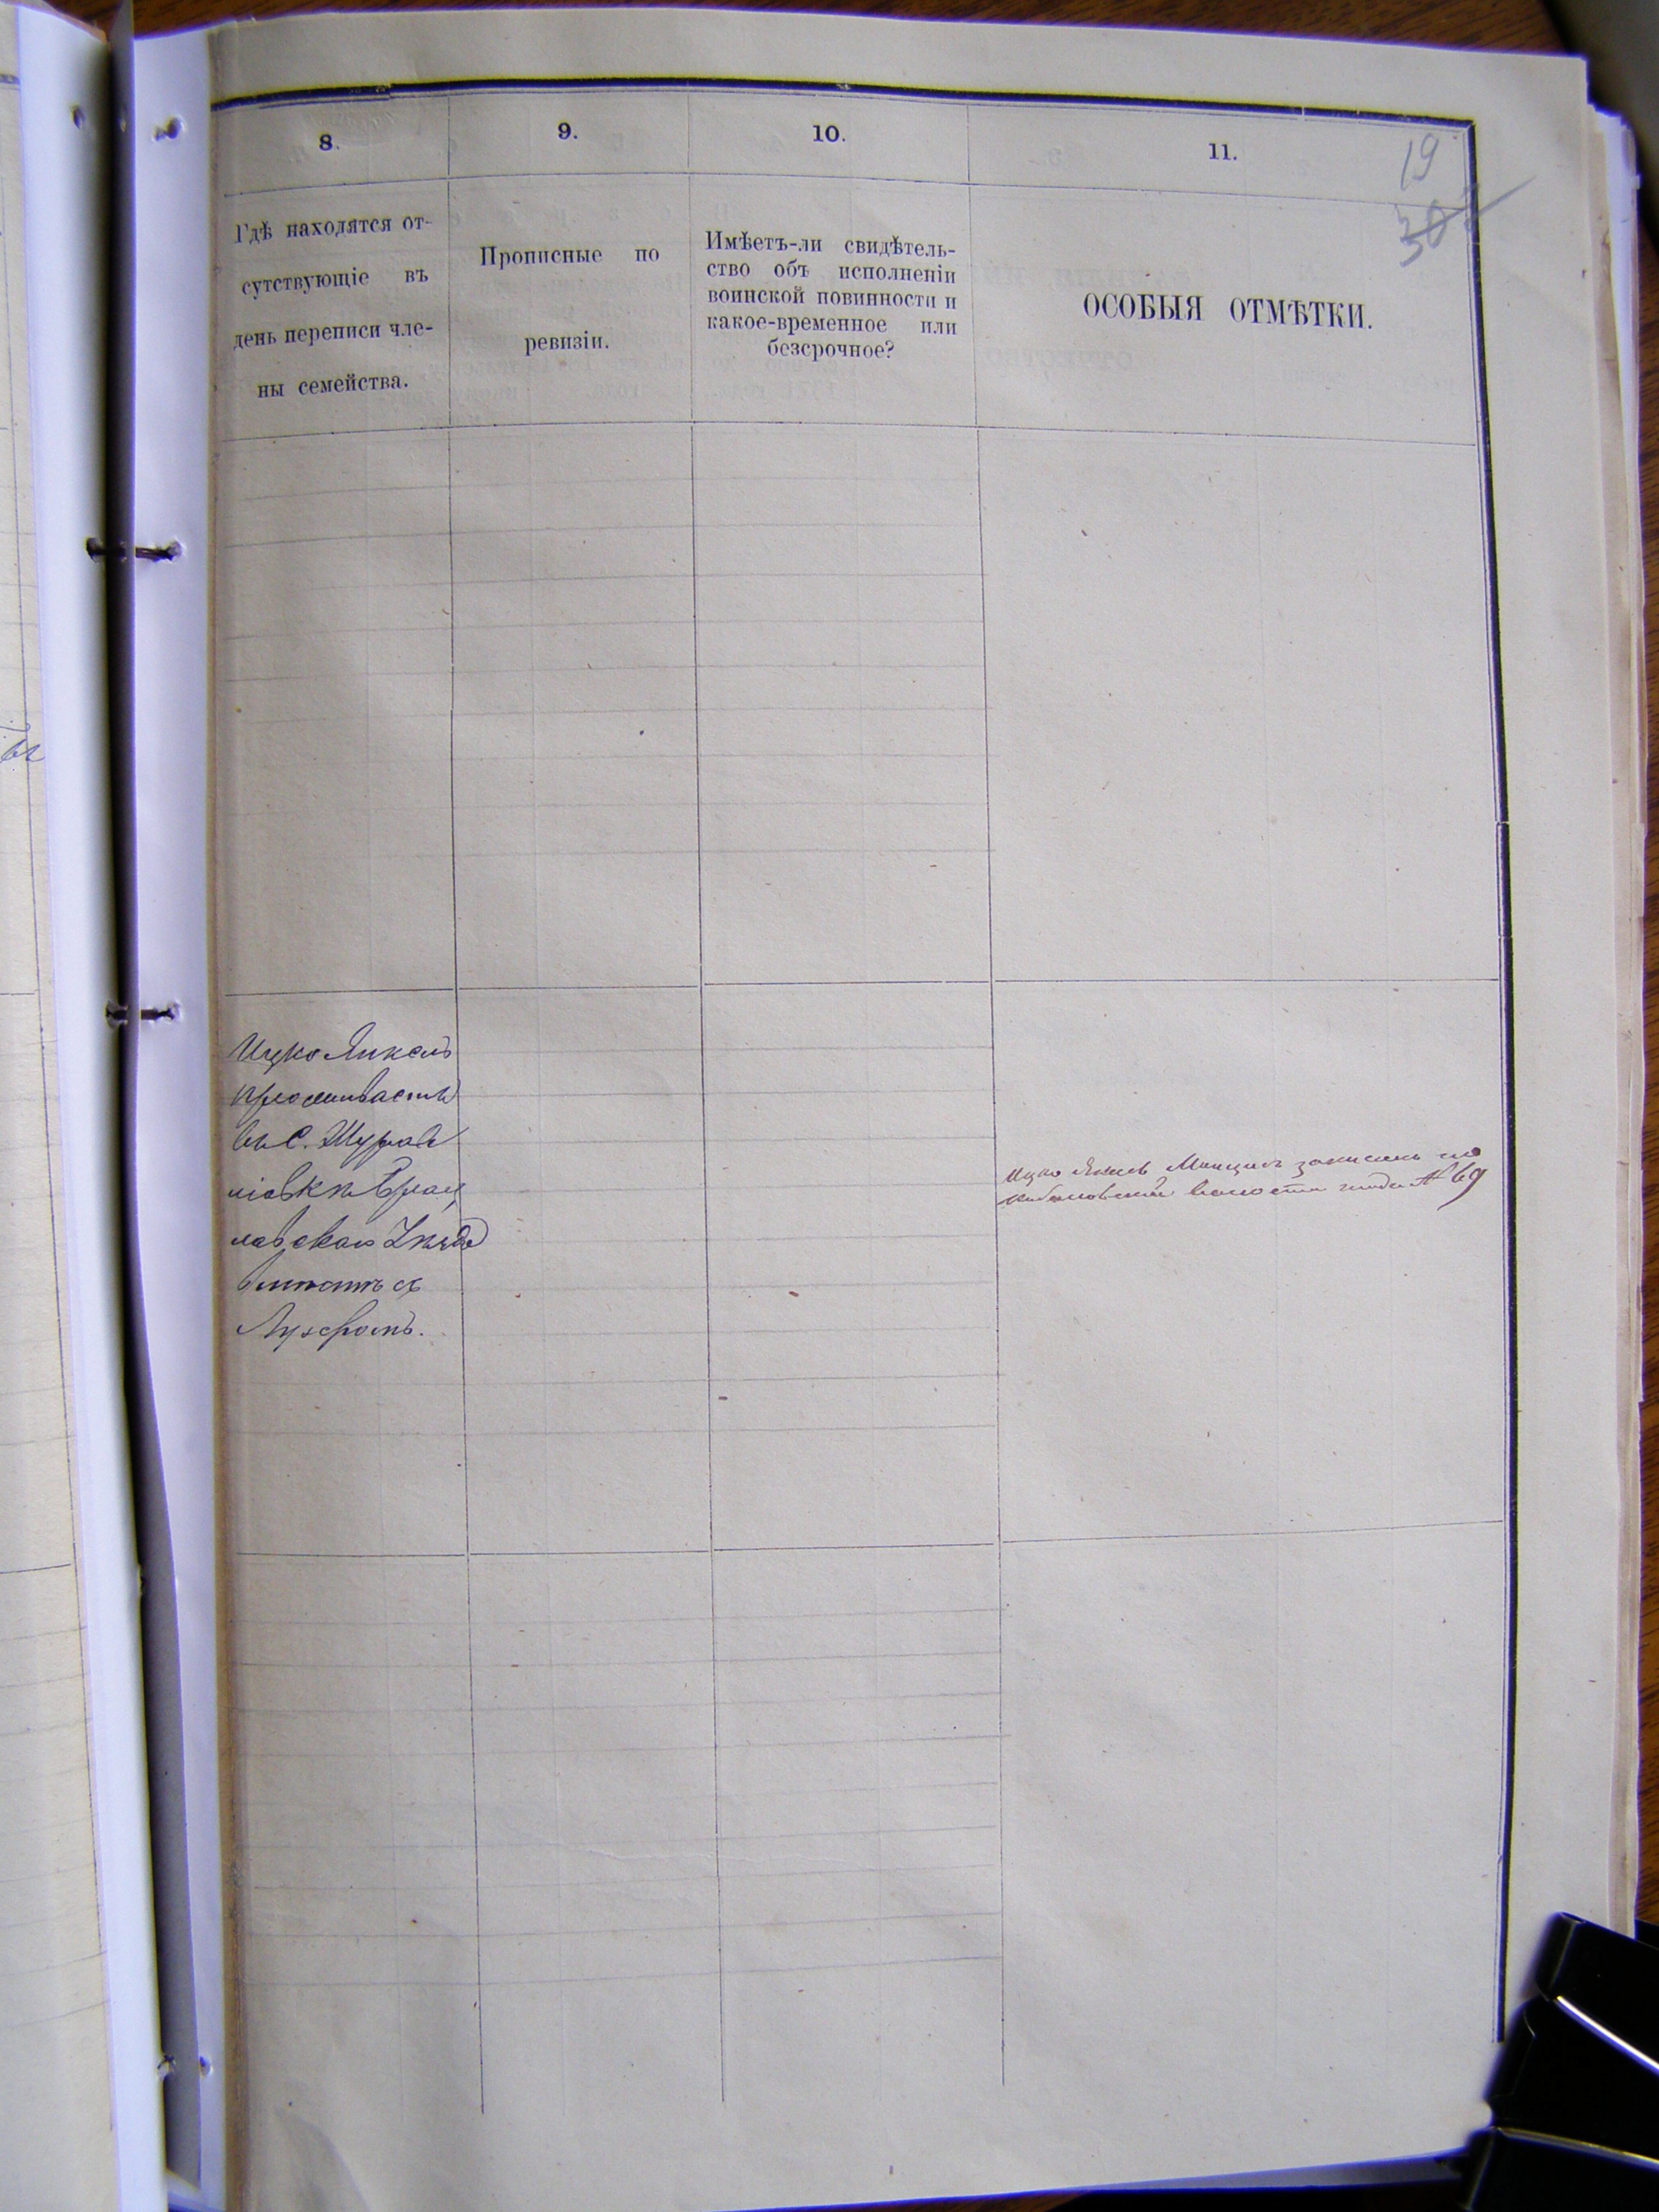 8.
9.
10.
11.
19
Гдѣ находятся от-
сутствующіе въ
день переписи чле-
ны семейства.
Прописные по
ревизіи.
Имѣетъ-ли свидѣтель-
ство объ исполненіи
воинской повинности и
какое-временное или
безсрочное?
ОСОБЫЯ ОТМѢТКИ.
Ицко Янкель
проживаетъ
въ с. Журав
ліовкѣ Брац
лавскаго
Ицко записанъ по
волости подъ № 69